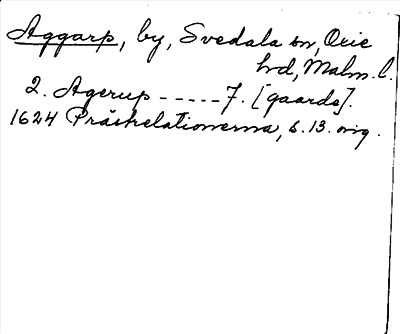 Aggarp, by, Svedala sn, Oxie
hd, Malm. l.
2. Agerup ----- 7. [gaarde].
1624 Prästrelationerna, s. 13. orig.